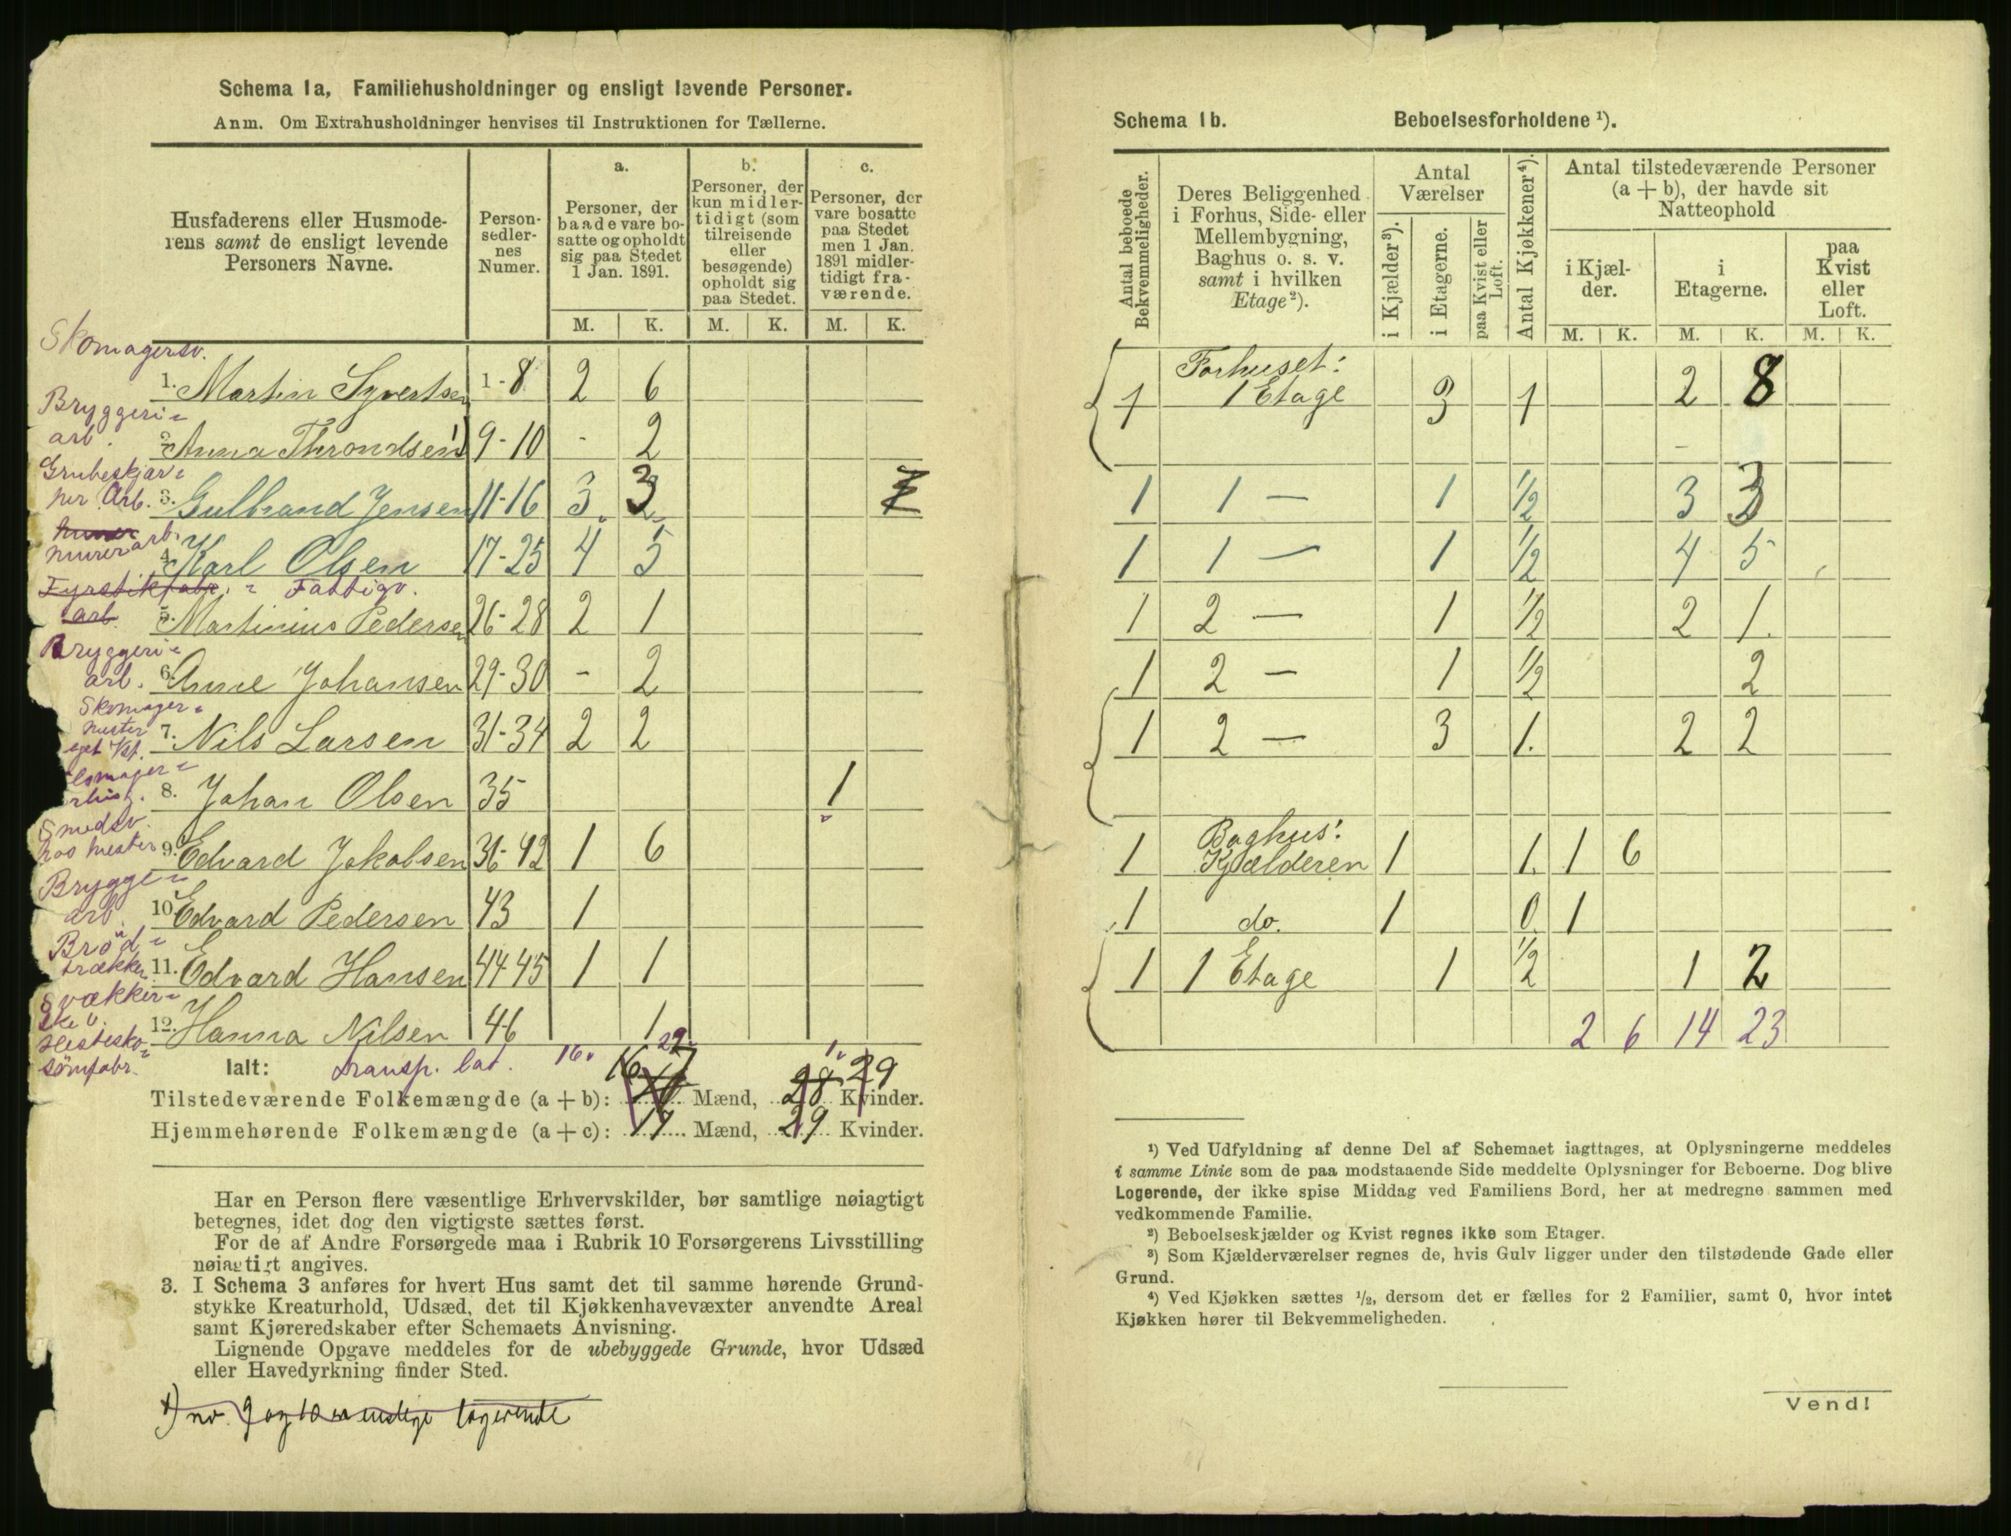 Schema 1a, Familiehusholdninger og ensligt levende Personer.
Anm. Om Extrahusholdninger henvises til Instruktionen for Tællerne.
Husfaderens eller Husmoderens samt de ensligt levende Personers Navne.
Personsedlernes Numer.
a. Personer, der baade vare bosatte og opholdt sig paa Stedet 1 Jan. 1891.
b. Personer, der kun midlertidigt (som tilreisende eller besøgende) opholdt sig paa Stedet.
c. Personer, der vare bosatte paa Stedet men 1 Jan. 1891 midlertidigt fraværende.
M. K. M. K. M. K.
Skomagersv.
1. Martin Syvertsen 1-8 2 6
Bryggeri-
arb.
2. Anna Throndsen 1) 9-10 - 2
Grubeskjær-
per Arb.
3. Gulbrand Jensen 11-16 3 3
murerarb.
4. Karl Olsen 17-25 4 5
Fyrstikfabr. = Fattigv.
arb.
5. Martinius Pedersen 26-28 2 1
Bryggeri-
arb.
6. Anne Johansen 29-30 - 2
Skomager-
mester
7. Nils Larsen 31-34 2 2
8. Johan Olsen 35 1
Smedsv.
hos mester
9. Edvard Jakobsen 36-42 1 6
Bryggeri-
arb.
10. Edvard Pedersen 43 1
Brød-
trækker
11. Edvard Hansen 44-45 1 1
Hestesko-
sömfabr.
12. Hanna Nilsen 46 1
Ialt: transp. lat. 16 29 1
Tilstedeværende Folkemængde (a + b): 16 Mænd, 28 29 Kvinder.
Hjemmehørende Folkemængde (a + c): 17 Mænd, 29 Kvinder.
Har en Person flere væsentlige Erhvervskilder, bør samtlige nøiagtigt
betegnes, idet dog den vigtigste sættes først.
For de af Andre Forsørgede maa i Rubrik 10 Forsørgerens Livsstilling
nøiagtigt angives.
3. I Schema 3 anføres for hvert Hus samt det til samme hørende Grund-
stykke Kreaturhold, Udsæd, det til Kjøkkenhavevæxter anvendte Areal
samt Kjøreredskaber efter Schemaets Anvisning.
Lignende Opgave meddeles for de ubebyggede Grunde, hvor Udsæd
eller Havedyrkning finder Sted.
1) no. 9 og 10 enslige logerende
Schema 1b. Beboelsesforholdene ¹).
Antal beboede Bekvemmeligheder.
Deres Beliggenhed i Forhus, Side- eller Mellembygning, Baghus o. s. v. samt i hvilken Etage²).
Antal Værelser
i Kjælder³).
i Etagerne.
paa Kvist eller Loft.
Antal Kjøkkener⁴).
Antal tilstedeværende Personer (a + b), der havde sit Natteophold
i Kjælder.
i Etagerne.
paa Kvist eller Loft.
M. K. M. K. M. K.
Forhuset:
1 1 Etage 3 1 2 8
1 1 — 1 1/2 3 3
1 1 — 1 1/2 4 5
1 2 — 1 1/2 2 1
1 2 — 1 1/2 2
1 2 — 3 1. 2 2
Baghus:
1 Kjælderen 1 1. 1 6
1 do. 1 0 1
1 1 Etage 1 1/2 1 2
2 6 14 23
¹) Ved Udfyldning af denne Del af Schemaet iagttages, at Oplysningerne meddeles
i samme Linie som de paa modstaaende Side meddelte Oplysninger for Beboerne. Dog blive
Logerende, der ikke spise Middag ved Familiens Bord, her at medregne sammen med
vedkommende Familie.
²) Beboelseskjælder og Kvist regnes ikke som Etager.
³) Som Kjælderværelser regnes de, hvis Gulv ligger under den tilstødende Gade eller
Grund.
⁴) Ved Kjøkken sættes ½, dersom det er fælles for 2 Familier, samt 0, hvor intet
Kjøkken hører til Bekvemmeligheden.
Vend!